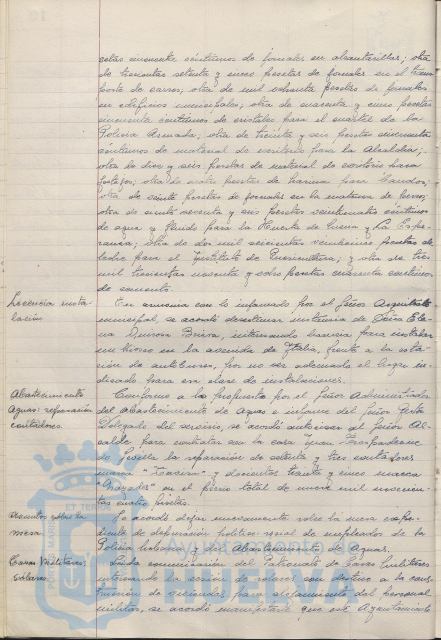 setas cincuenta céntimos de jornales en alcantarillas; otra
de trescientas setenta y cinco pesetas de jornales en el trans
porte de carros; otra de mil ochenta pesetas de jornales
en edificios municipales; otra de cuarenta y cinco pesetas
cincuenta céntimos de cristales para el cuartel de la
Policía Armada; otra de treinta y seis pesetas cincuenta
céntimos de material de escritorio para la Alcaldía;
otra de diez y seis pesetas de material de escritorio para
festejos; otra de cuatro pesetas de harina para
otra de veinte pesetas de jornales en la matanza de perros;
otra de ciento noventa y seis pesetas veinticuatro céntimos
de agua y fluido para la Huerta de Mena y La Espe-
ranza; otra de dos mil seiscientas veinticinco pesetas de
leche para el Instituto de Puericultura; y otra de tres
mil trescientas noventa y ocho pesetas cuarenta céntimos
de cemento.
Licencia insta-
lación
En armonía con lo informado por el Señor Arquitecto
municipal, se acordó desestimar instancia de Doña Ele
na Quirosa interesando licencia para instalar
un kiosco en la avenida de Italia, frente a la esta-
ción de autobuses, por no ser adecuado el lugar in-
dicado para esa clase de instalaciones.
Abastecimiento
Aguas: reparación
contadores
Conforme a lo propuesto por el Señor Administrador
del abastecimiento de Aguas e informe del Señor
Delegado del servicio, se acordó autorizar al Señor Al-
calde para contratar con la casa Juan
de Sevilla la reparación de setenta y tres contadores
marca y doscientos treinta y cinco marca
en el precio total de nueve mil novecien-
tas cuatro pesetas.
Asuntos sobre la
mesa
Se acordó dejar nuevamente sobre la mesa expe-
diente de depuración político-social de empleados de la
Policía Urbana y del Abastecimiento de Aguas.
Casas Militares:
solares
Leída comunicación del Patronato de Casas Militares
interesando la cesión de solares con destino a la cons-
trucción de viviendas para alojamiento del personal
militar, se acordó manifestarle que este Ayuntamiento
Ayuntamiento de
HUELVA